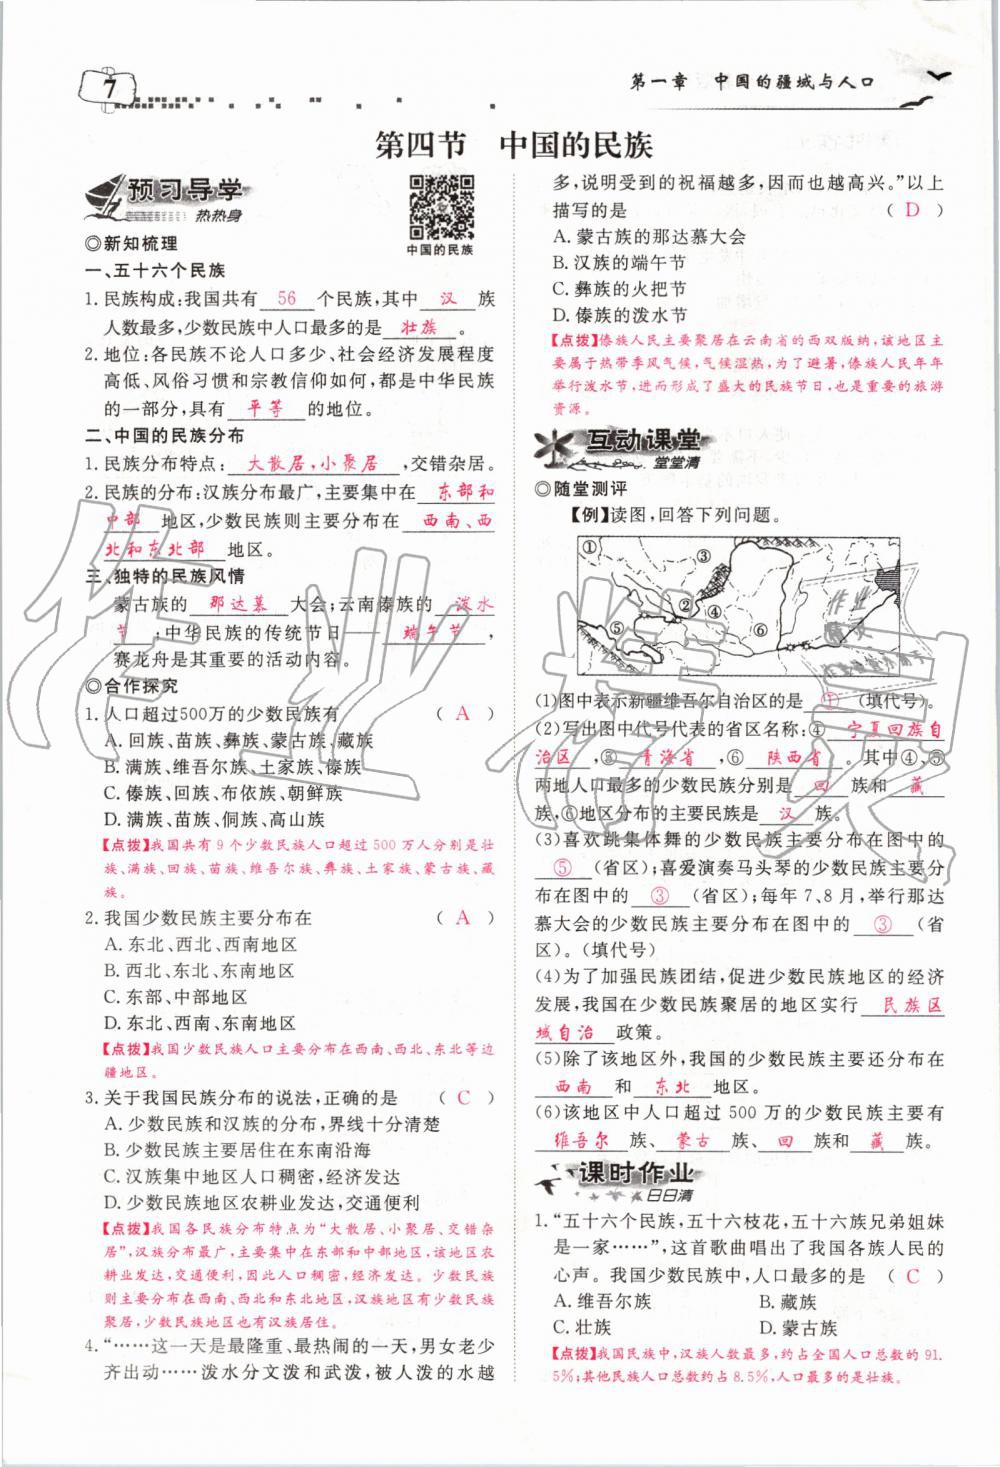 7
第一章 中国的疆域与人口
第四节 中国的民族
预习导学
热热身
中国的民族
◎新知梳理
一、五十六个民族
1. 民族构成:我国共有 56 个民族,其中 汉 族
人数最多,少数民族中人口最多的是 壮族 。
2. 地位:各民族不论人口多少、社会经济发展程度
高低、风俗习惯和宗教信仰如何,都是中华民族
的一部分,具有 平等 的地位。
二、中国的民族分布
1. 民族分布特点: 大散居,小聚居 ,交错杂居。
2. 民族的分布:汉族分布最广,主要集中在 东部和
中部 地区,少数民族则主要分布在 西南、西
北和东北部 地区。
三、独特的民族风情
蒙古族的 那达慕 大会;云南傣族的 泼水
节 ;中华民族的传统节日—— 端午节 ,
赛龙舟是其重要的活动内容。
◎合作探究
1. 人口超过500万的少数民族有 ( A )
A. 回族、苗族、彝族、蒙古族、藏族
B. 满族、维吾尔族、土家族、傣族
C. 傣族、回族、布依族、朝鲜族
D. 满族、苗族、侗族、高山族
【点拨】我国共有 9 个少数民族人口超过 500 万人分别是壮
族、满族、回族、苗族、维吾尔族、彝族、土家族、蒙古族、藏
族。
2. 我国少数民族主要分布在 ( A )
A. 东北、西北、西南地区
B. 西北、东北、东南地区
C. 东部、中部地区
D. 东北、西南、东南地区
【点拨】我国少数民族人口主要分布在西南、西北、东北等边
疆地区。
3. 关于我国民族分布的说法,正确的是 ( C )
A. 少数民族和汉族的分布,界线十分清楚
B. 少数民族主要居住在东南沿海
C. 汉族集中地区人口稠密,经济发达
D. 少数民族地区农耕业发达,交通便利
【点拨】我国各民族分布特点为“大散居、小聚居、交错杂
居”,汉族分布最广,主要集中在东部和中部地区,该地区农
耕业发达,交通便利,因此人口稠密,经济发达。少数民族
则主要分布在西南、西北和东北地区,汉族地区有少数民族
聚居,少数民族地区也有汉族居住。
4. “……这一天是最隆重、最热闹的一天,男女老少
齐出动……泼水分文泼和武泼,被人泼的水越
多,说明受到的祝福越多,因而也越高兴。”以上
描写的是 ( D )
A. 蒙古族的那达慕大会
B. 汉族的端午节
C. 彝族的火把节
D. 傣族的泼水节
【点拨】傣族人民主要聚居在云南省的西双版纳,该地区主
要属于热带季风气候,气候湿热,为了避暑,傣族人民年年
举行泼水节,进而形成了盛大的民族节日,也是重要的旅游
资源。
互动课堂
堂堂清
◎随堂测评
【例】读图,回答下列问题。
①
③
②
④
⑤
⑥
(1)图中表示新疆维吾尔自治区的是 ① (填代号)。
(2)写出图中代号代表的省区名称:④ 宁夏回族自
治区 ,⑤ 青海省 ,⑥ 陕西省 。其中④、⑤
两地人口最多的少数民族分别是 回 族和 藏
族,⑥地区分布的主要民族是 汉 族。
(3)喜欢跳集体舞的少数民族主要分布在图中的
⑤ (省区);喜爱演奏马头琴的少数民族主要分
布在图中的 ③ (省区);每年 7、8 月,举行那达
慕大会的少数民族主要分布在图中的 ③ (省
区)。(填代号)
(4)为了加强民族团结,促进少数民族地区的经济
发展,我国在少数民族聚居的地区实行 民族区
域自治 政策。
(5)除了该地区外,我国的少数民族主要还分布在
西南 和 东北 地区。
(6)该地区中人口超过 500 万的少数民族主要有
维吾尔 族、 蒙古 族、 回 族和 藏 族。
课时作业
日日清
1. “五十六个民族,五十六枝花,五十六族兄弟姐妹
是一家……”,这首歌曲唱出了我国各族人民的
心声。我国少数民族中,人口最多的是 ( C )
A. 维吾尔族 B. 藏族
C. 壮族 D. 蒙古族
【点拨】我国民族中,汉族人数最多,约占全国人口总数的 91.
5%;其他民族总数约占 8.5%,人口最多的是壮族。
作业精灵